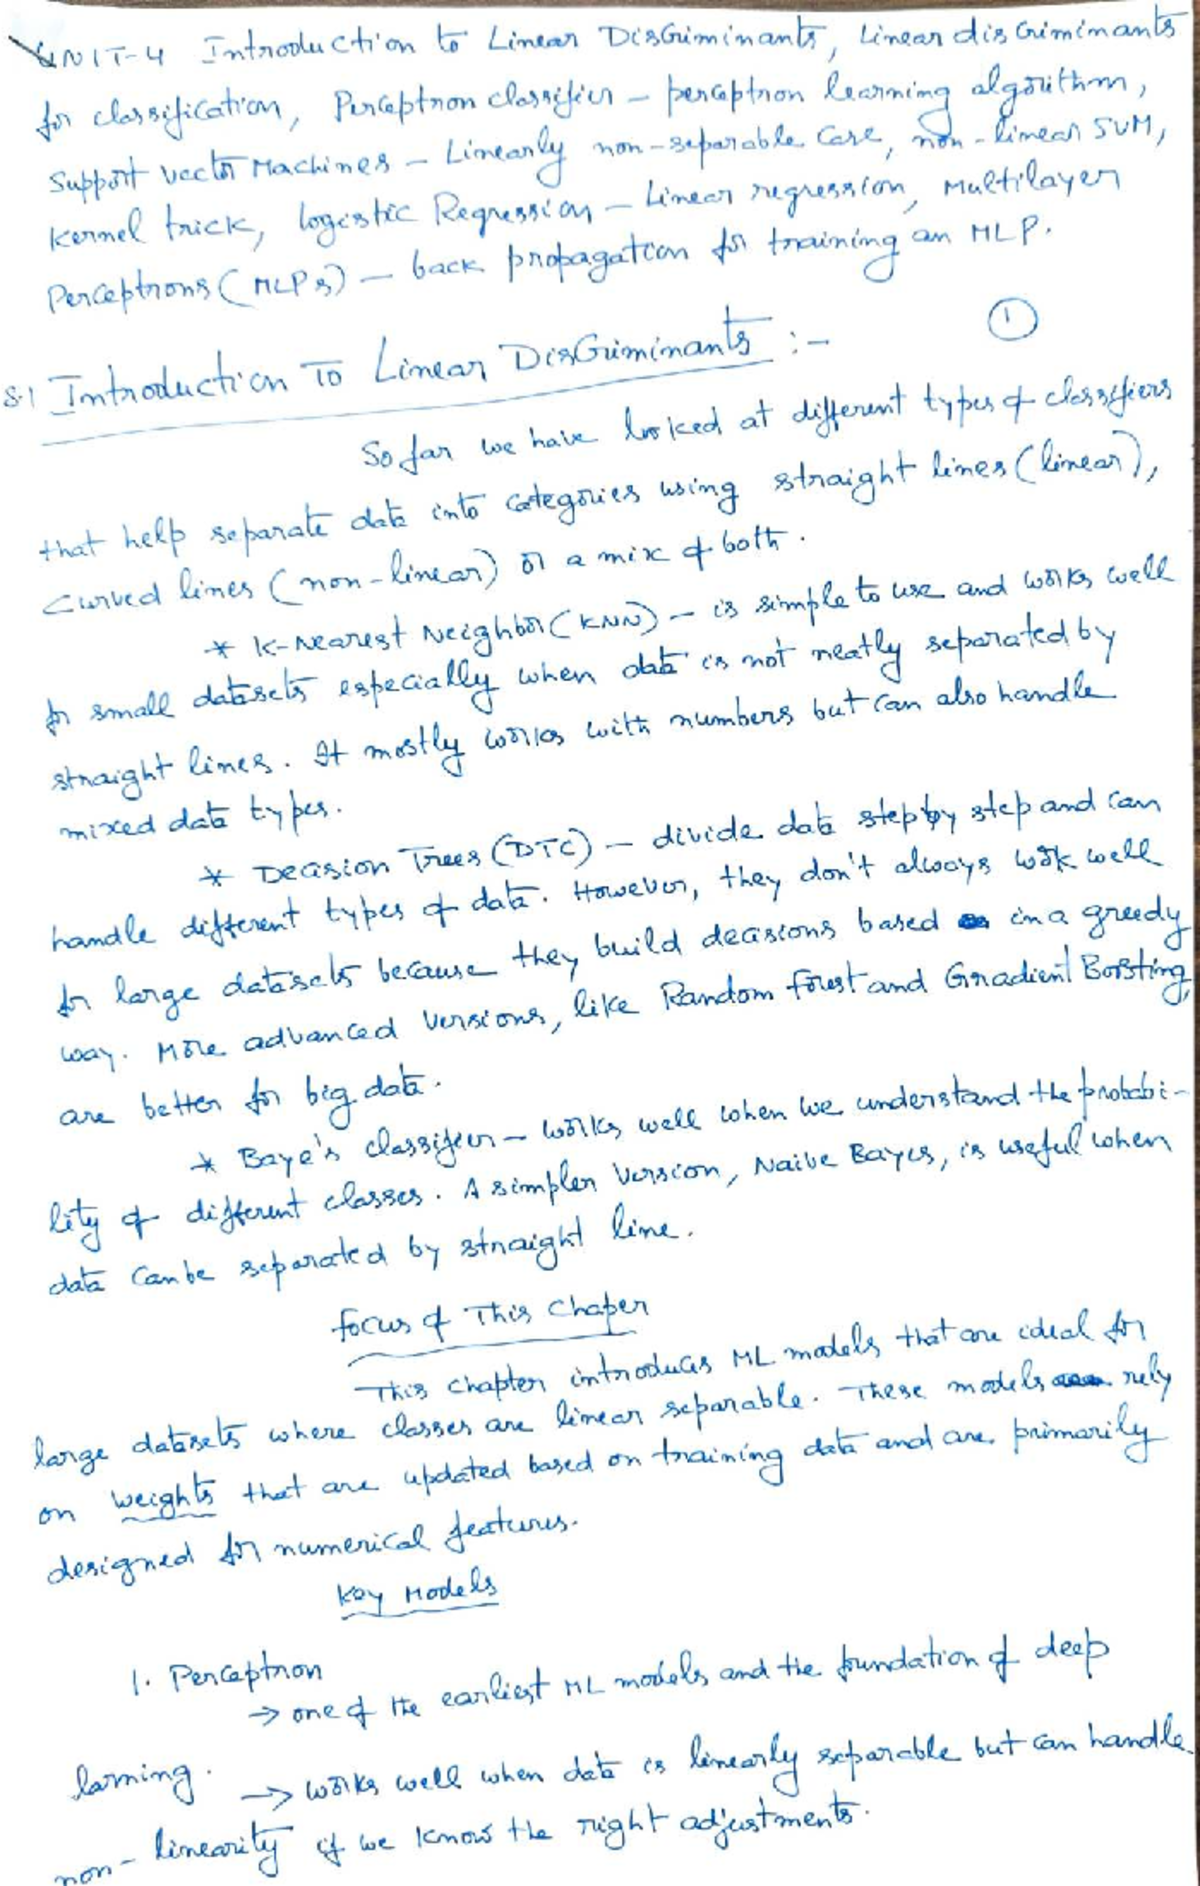 UNIT-4 Introduction to Linear Discriminants, Linear discriminants
for classification, Perceptron classifier - perceptron learning algorithm,
Support vector Machines - Linearly non-separable case, non-linear SVM,
Kernel trick, logistic Regression - Linear regression, Multilayer
Perceptrons (MLPs) - back propagation for training an MLP.
1
8.1 Introduction To Linear Discriminants :-
So far we have looked at different types of classifiers
that help separate data into categories using straight lines (linear),
curved lines (non-linear) or a mix of both.
* K-Nearest Neighbor (KNN) - is simple to use and works well
for small datasets especially when data is not neatly separated by
straight lines. It mostly works with numbers but can also handle
mixed data types.
* Decision Trees (DTC) - divide data step by step and can
handle different types of data. However, they don't always work well
for large datasets because they build decisions based in a greedy
way. More advanced versions, like Random forest and Gradient Boosting,
are better for big data.
* Baye's classifier - works well when we understand the probabi-
lity of different classes. A simpler version, Naive Bayes, is useful when
data can be separated by straight line.
focus of This Chaper
This chapter introduces ML models that are ideal for
large datasets where classes are linear separable. These models rely
on weights that are updated based on training data and are primarily
designed for numerical features.
Key Models
1. Perceptron
→ one of the earliest ML models and the foundation of deep
larning.
→ works well when data is linearly separable but can handle
non-linearity if we know the right adjustments.